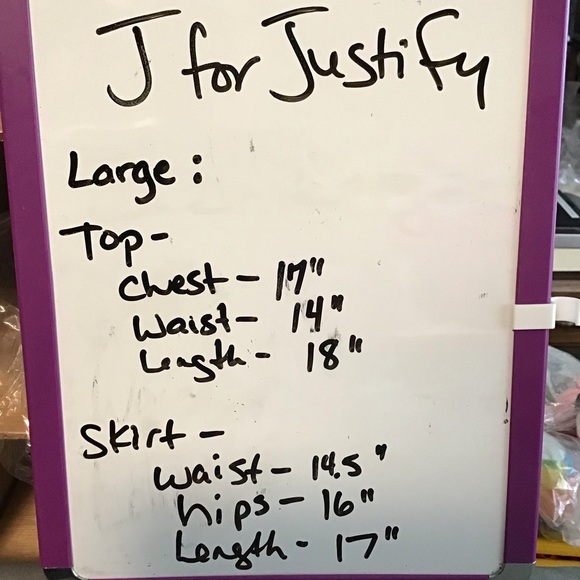 J for Justify
Large:
Top-
Chest - 17"
Waist - 14"
Length - 18"
Skirt -
Waist - 14.5"
hips - 16"
Length - 17"